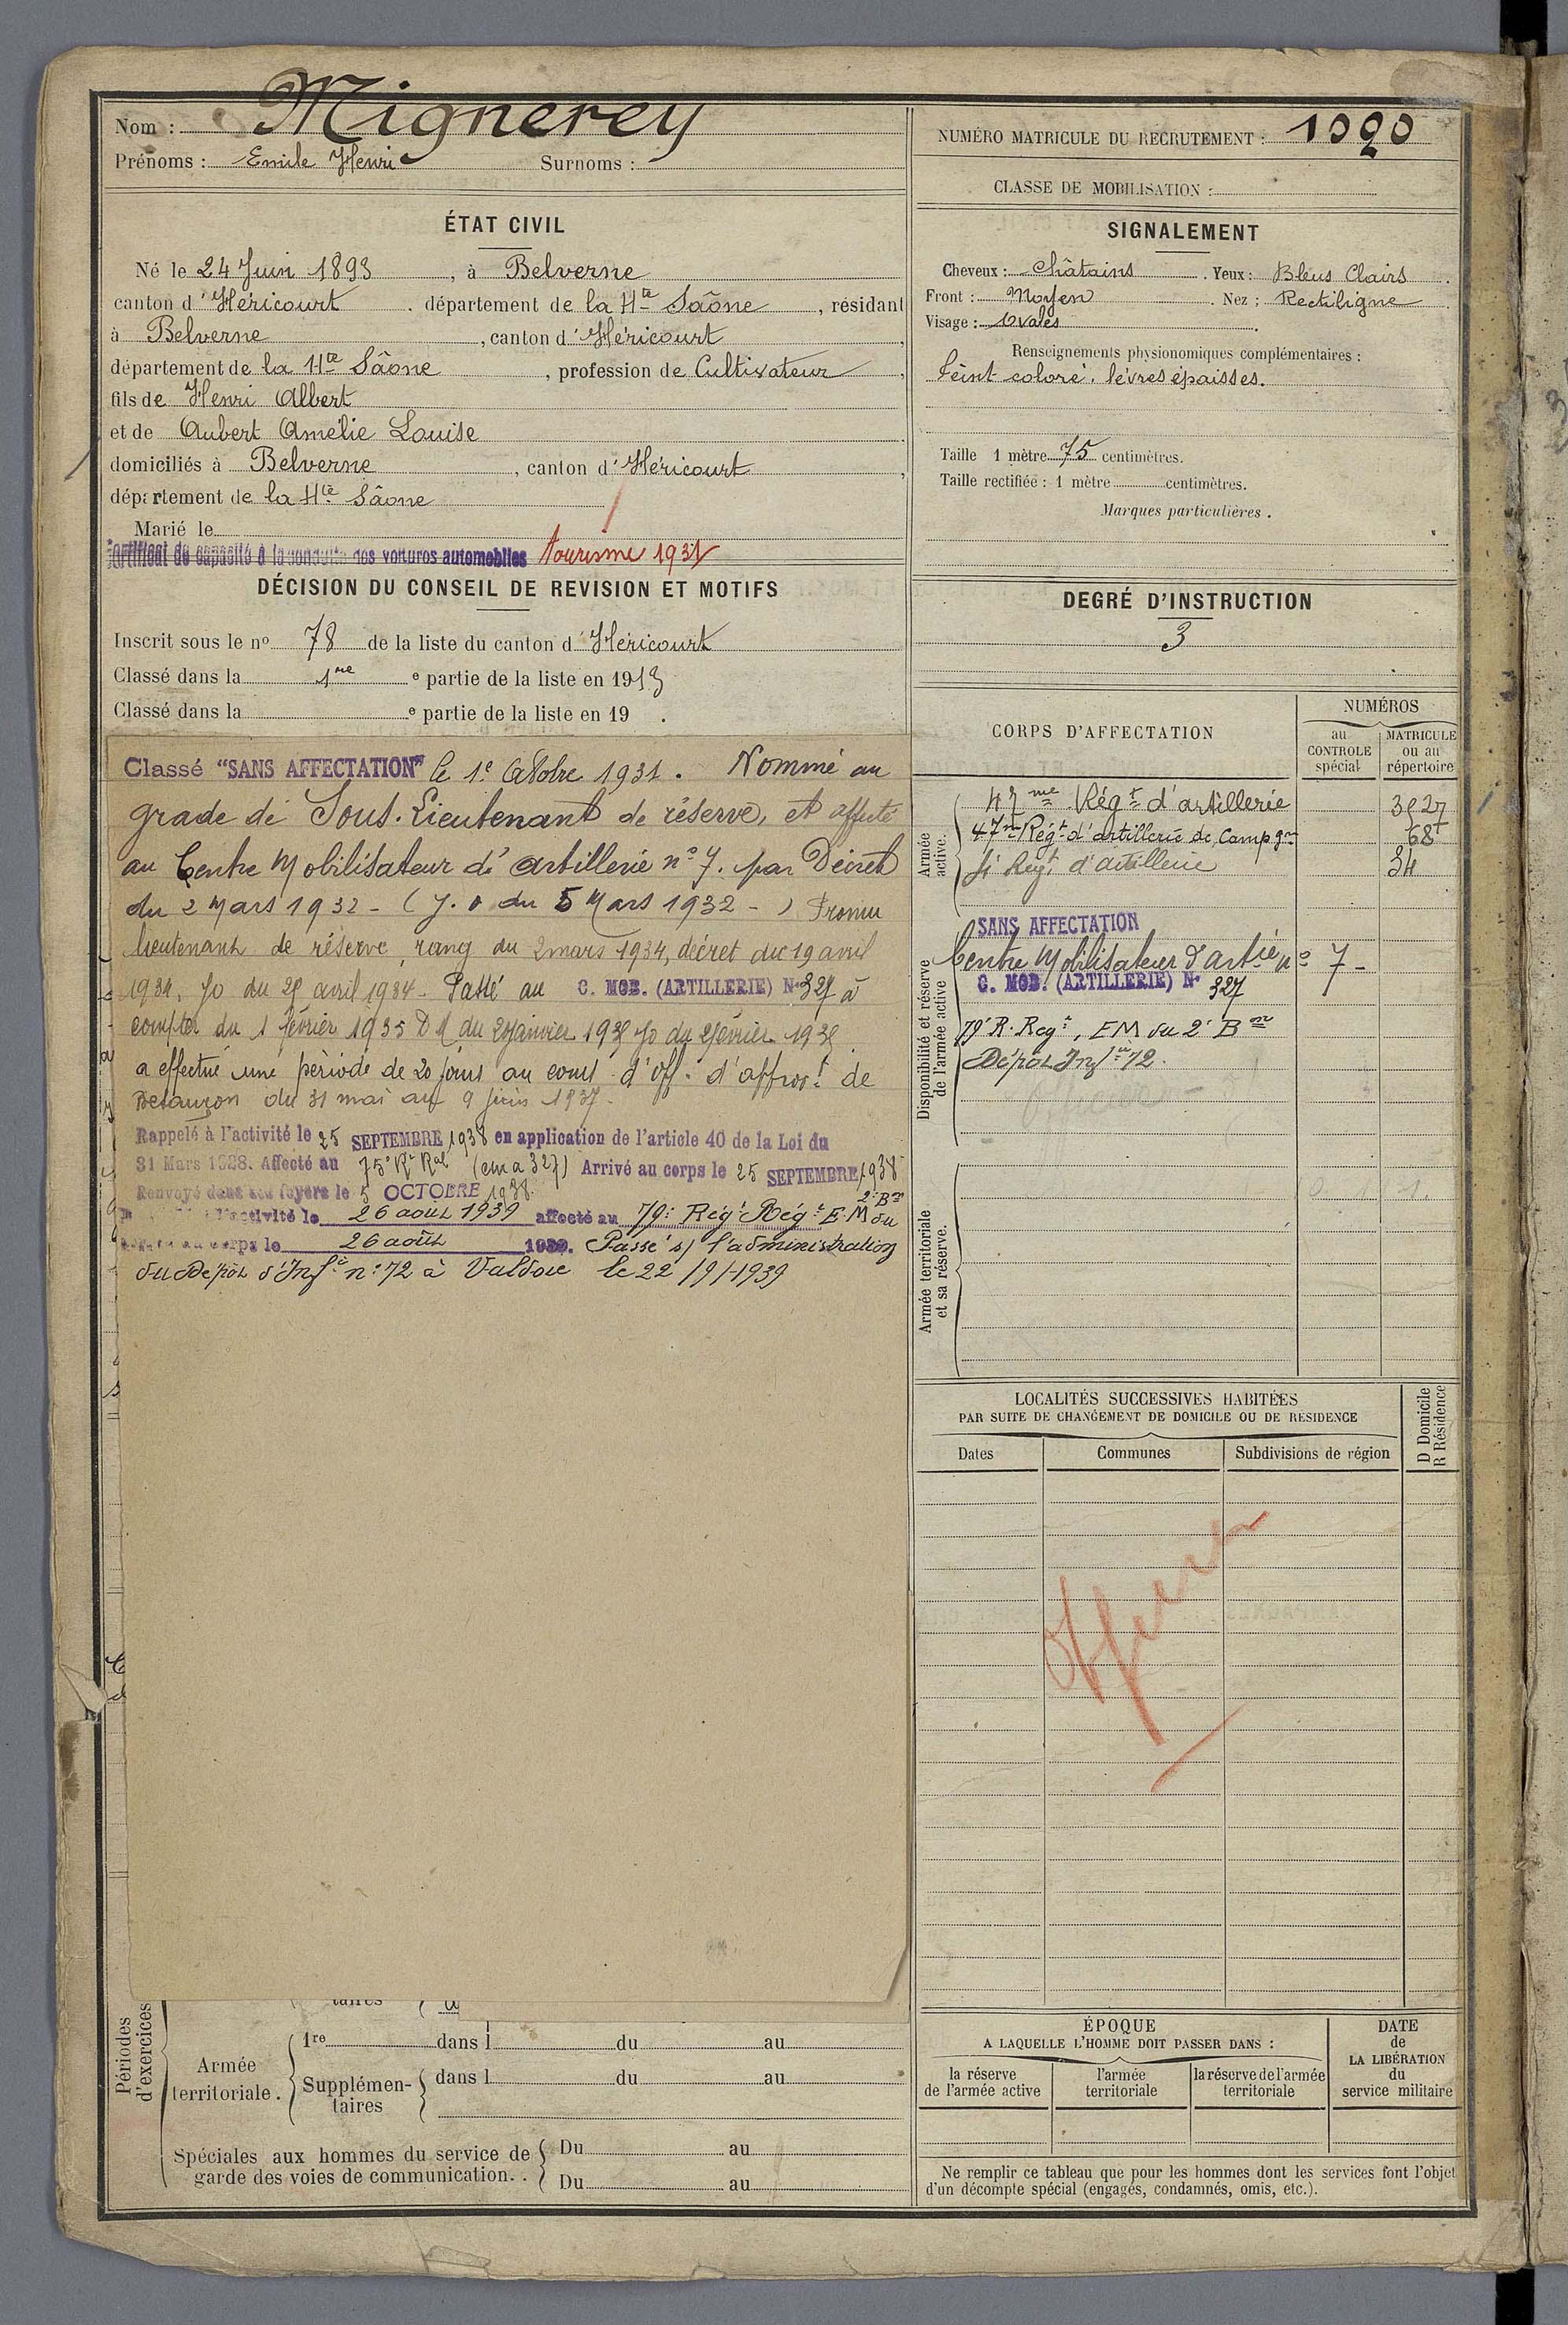 Nom : Mignerey
Prénoms : Emile Henri Surnoms :
ÉTAT CIVIL
Né le 24 Juin 1893, à Belverne
canton d'Héricourt, département de la Hte Saône, résidant
à Belverne, canton d'Héricourt,
département de la Hte Saône, profession de Cultivateur,
fils de Henri Albert
et de Aubert Amélie Louise
domiciliés à Belverne, canton d'Héricourt,
département de la Hte Saône
Marié le
Certificat de capacité à la conduite des voitures automobiles Tourisme 1931
DÉCISION DU CONSEIL DE REVISION ET MOTIFS
Inscrit sous le no 78 de la liste du canton d'Héricourt
Classé dans la 1re e partie de la liste en 1913
Classé dans la e partie de la liste en 19 .
Classé "SANS AFFECTATION" le 1e Octobre 1931. Nommé au
grade de Sous-Lieutenant de réserve, et affecté
au Centre Mobilisateur d'artillerie no 7. par Décret
du 2 Mars 1932 - (J.O du 5 Mars 1932 - ) Promu
lieutenant de réserve, rang du 2 mars 1934, décret du 19 avril
1934, Jo du 25 avril 1934 - Passé au C. MOB. (ARTILLERIE) No 327 à
compter du 1 février 1935 du janvier Jo du février
a effectué une période de 20 jours au cours d'off. d'appro.t de
Besançon du 31 mai au 9 juin 1937.
Rappelé à l'activité le 25 SEPTEMBRE 1938 en application de l'article 40 de la Loi du
31 Mars 1928. Affecté au 75e Rt Ral (cma 327) Arrivé au corps le 25 SEPTEMBRE 1938
Renvoyé dans ses foyers le 5 OCTOBRE 1938.
l'activité le 26 août 1939 affecté au 79e Régt Rég. E.M du 2e Bon
corps le 26 août 1939. Passé s/ l'administration
du Dépôt d'Infie no 72 à Valdoie le 22/9/1939
taires
Périodes d'exercices
Armée territoriale.
1re dans l du au
Supplémen-taires dans l du au
Spéciales aux hommes du service de garde des voies de communication. .
Du au
Du au
NUMÉRO MATRICULE DU RECRUTEMENT : 1020
CLASSE DE MOBILISATION :
SIGNALEMENT
Cheveux : Châtains. Yeux : Bleus Clairs.
Front : Moyen. Nez : Rectiligne
Visage : Ovales.
Renseignements physionomiques complémentaires :
Teint coloré, lèvres épaisses.
Taille 1 mètre 75 centimètres.
Taille rectifiée : 1 mètre centimètres.
Marques particulières .
DEGRÉ D'INSTRUCTION
3
CORPS D'AFFECTATION
NUMÉROS
au CONTROLE spécial
MATRICULE ou au répertoire
Armée active.
47me Régt d'artillerie 3527
47me Régt d'artillerie de Campgne 68
Régt d'artillerie 34
Disponibilité et réserve de l'armée active
SANS AFFECTATION
Centre Mobilisateur d'artie no 7 -
C. MOB. (ARTILLERIE) No 327
79e R. Régt, EM du 2e Bon
Dépôt Infie 72.
Armée territoriale et sa réserve.
LOCALITÉS SUCCESSIVES HABITÉES
PAR SUITE DE CHANGEMENT DE DOMICILE OU DE RÉSIDENCE
Dates
Communes
Subdivisions de région
D Domicile
R Résidence
Officier
ÉPOQUE
A LAQUELLE L'HOMME DOIT PASSER DANS :
la réserve de l'armée active
l'armée territoriale
la réserve de l'armée territoriale
DATE de LA LIBÉRATION du service militaire
Ne remplir ce tableau que pour les hommes dont les services font l'objet
d'un décompte spécial (engagés, condamnés, omis, etc.).